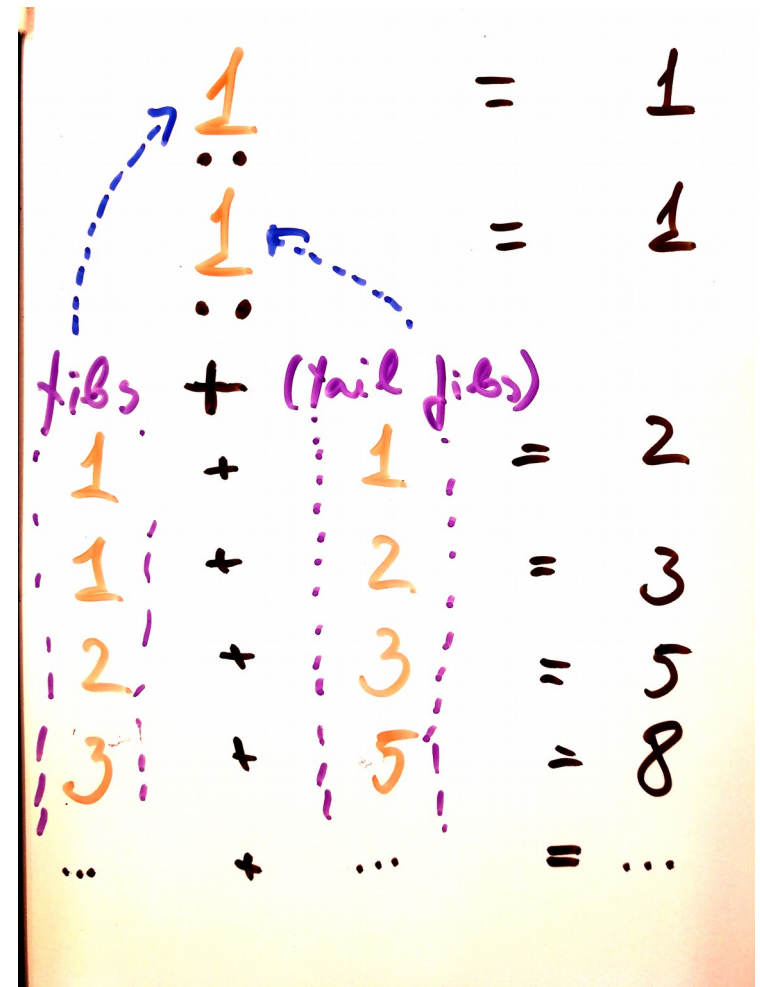 1 = 1
:
1 = 1
:
fibs + (tail fibs)
1 + 1 = 2
1 + 2 = 3
2 + 3 = 5
3 + 5 = 8
... + ... = ...